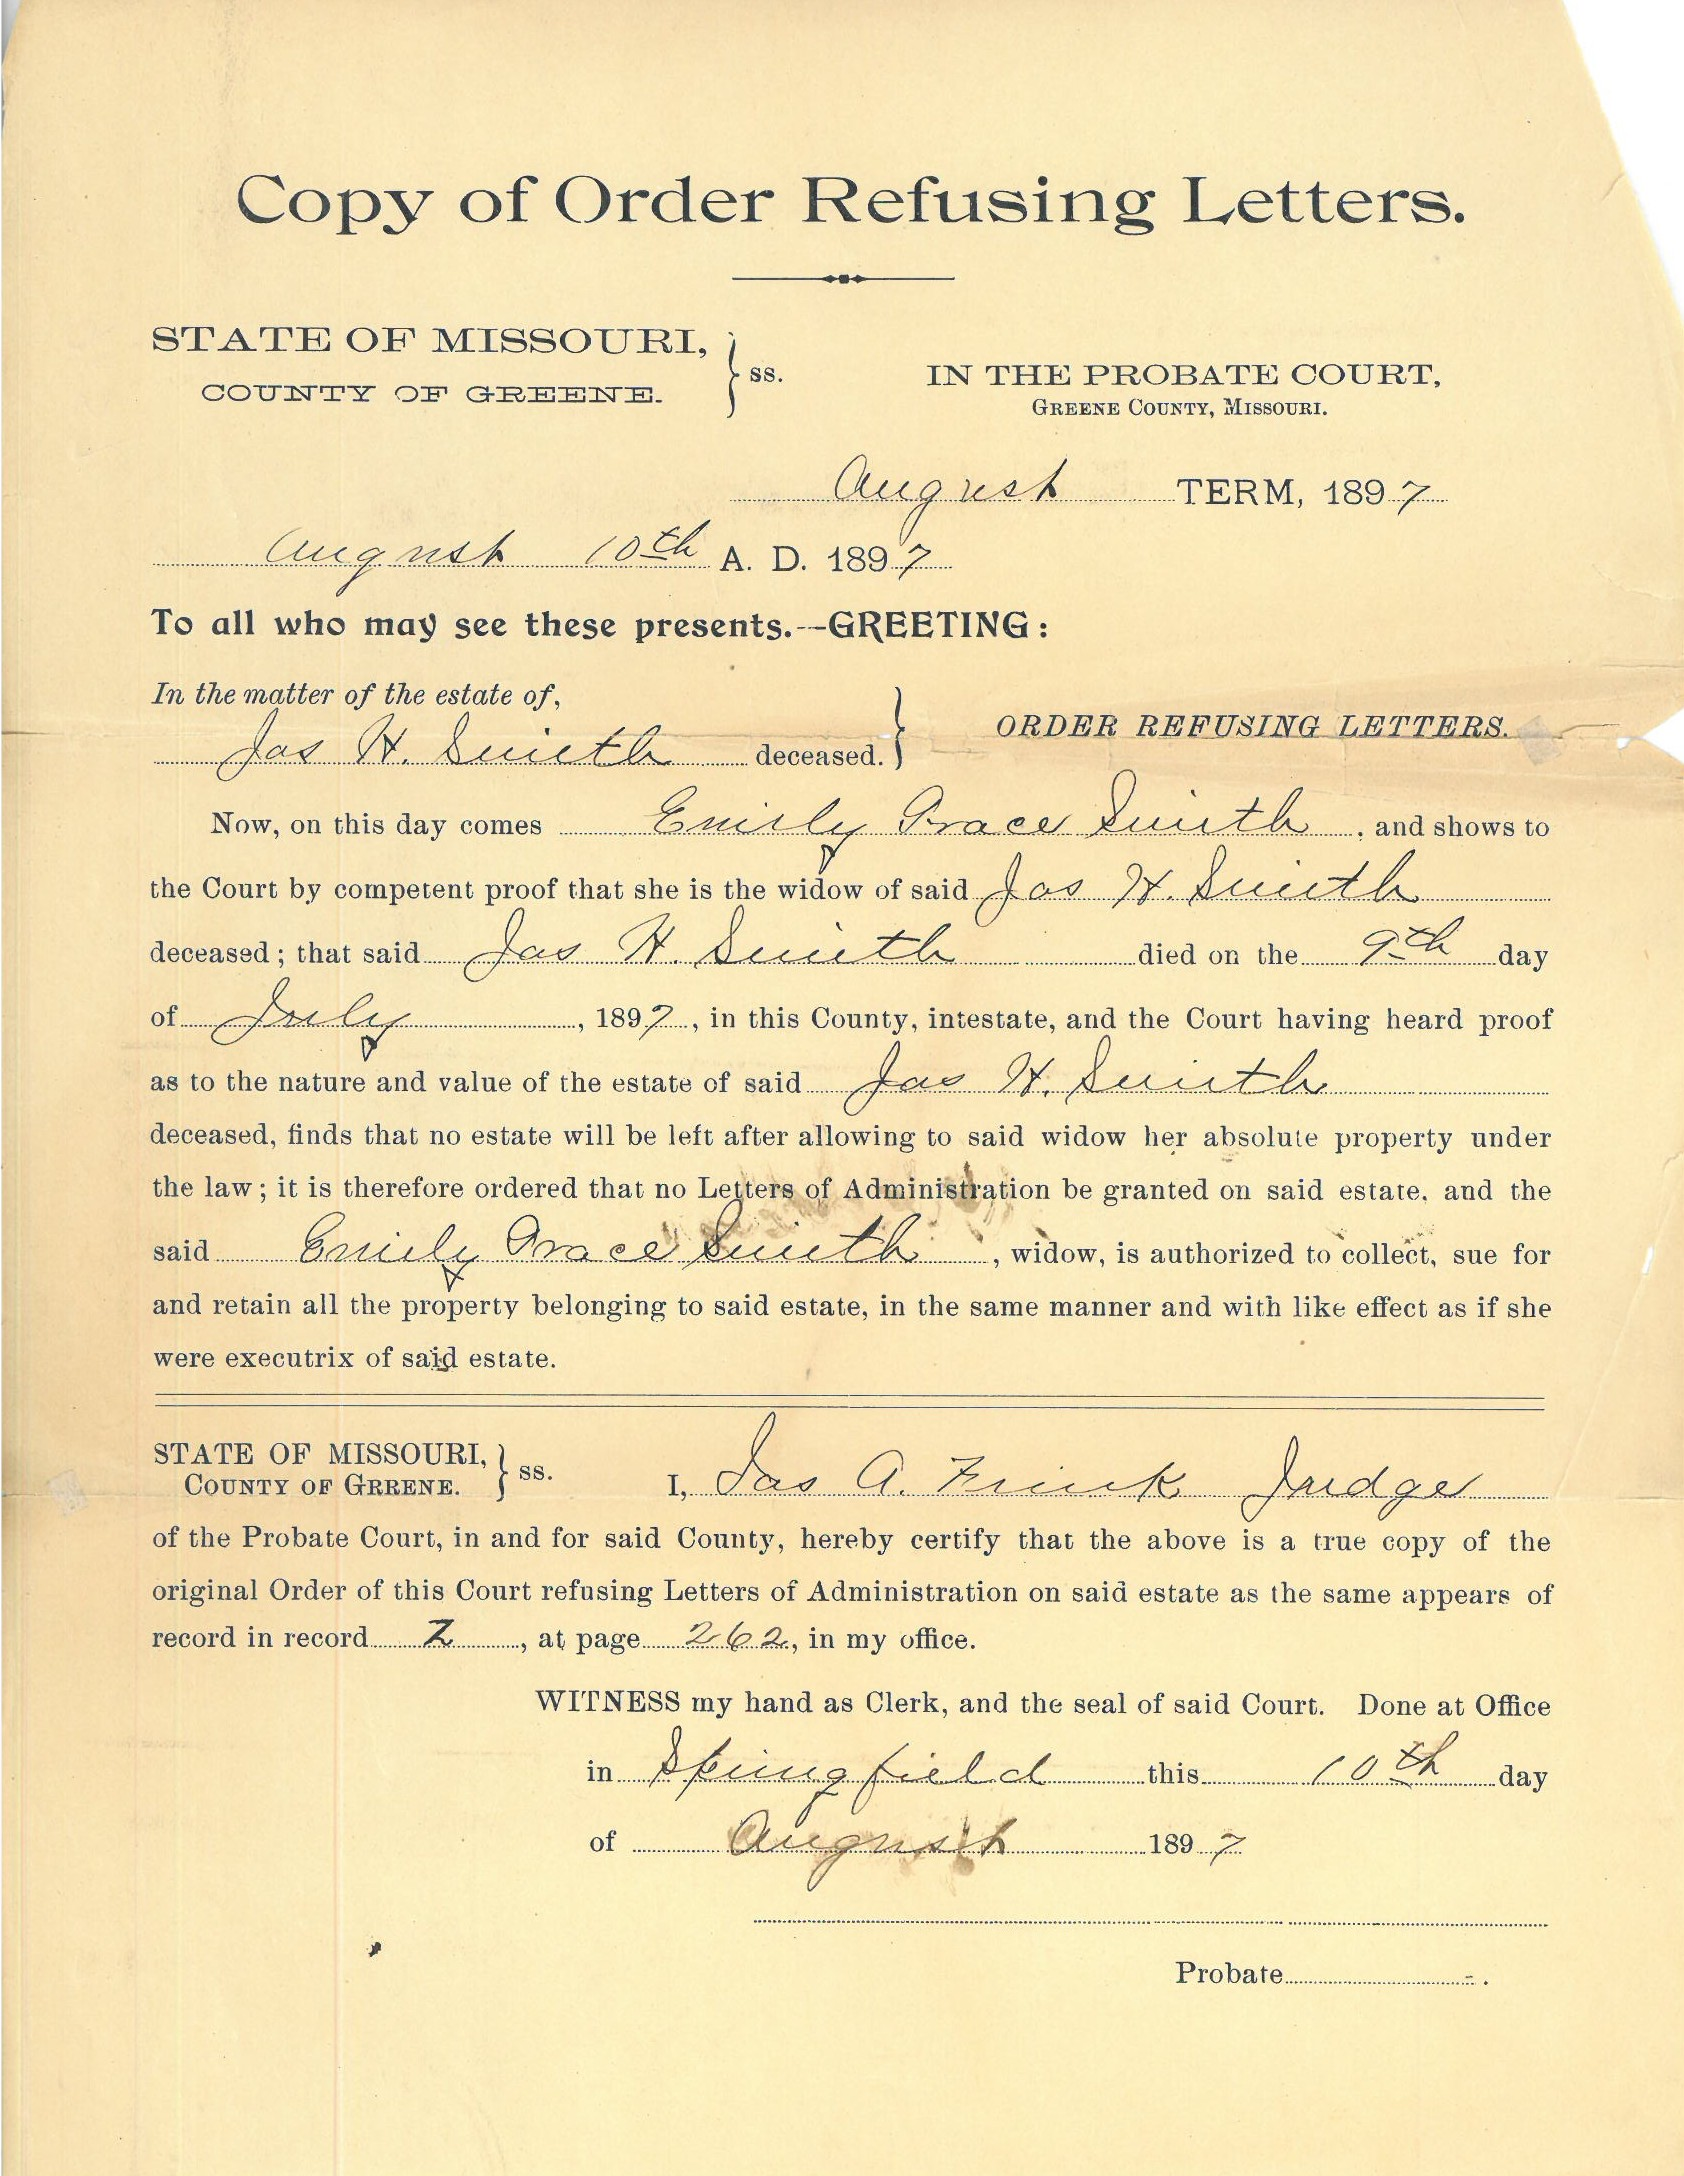 Copy of Order Refusing Letters.
STATE OF MISSOURI,
COUNTY OF GREENE. } ss.
IN THE PROBATE COURT,
GREENE COUNTY, MISSOURI.
August TERM, 1897
August 10th A. D. 1897
To all who may see these presents.--GREETING:
In the matter of the estate of,
Jas H. Smith deceased. } ORDER REFUSING LETTERS.
Now, on this day comes Emily Grace Smith, and shows to
the Court by competent proof that she is the widow of said Jas H. Smith
deceased; that said Jas H. Smith died on the 9th day
of July, 1897, in this County, intestate, and the Court having heard proof
as to the nature and value of the estate of said Jas H. Smith
deceased, finds that no estate will be left after allowing to said widow her absolute property under
the law; it is therefore ordered that no Letters of Administration be granted on said estate, and the
said Emily Grace Smith, widow, is authorized to collect, sue for
and retain all the property belonging to said estate, in the same manner and with like effect as if she
were executrix of said estate.
STATE OF MISSOURI,
COUNTY OF GRRENE. } ss.
I, Jas A. Frink Judge
of the Probate Court, in and for said County, hereby certify that the above is a true copy of the
original Order of this Court refusing Letters of Administration on said estate as the same appears of
record in record Z, at page 262, in my office.
WITNESS my hand as Clerk, and the seal of said Court. Done at Office
in Springfield this 10th day
of August 1897
Probate